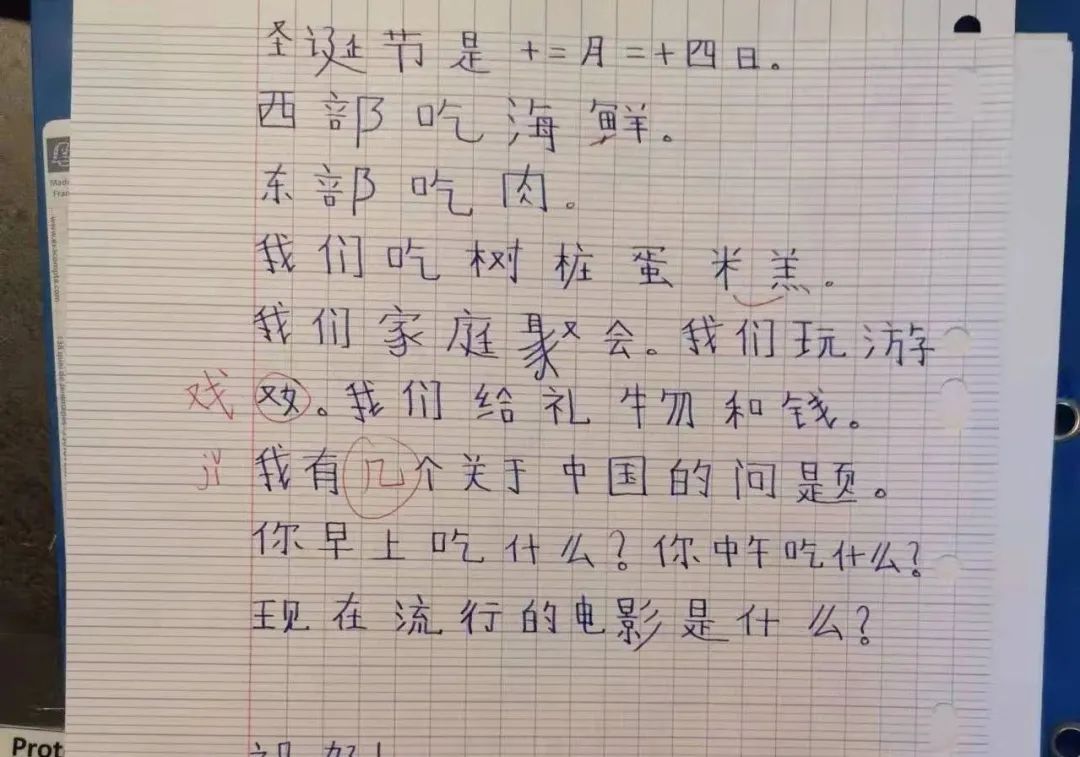 圣诞节是十二月二十四日。
西部吃海鲜。
东部吃肉。
我们吃树桩蛋糕。
我们家庭聚会。我们玩游
戏
戏。我们给礼物和钱。
jǐ
我有几个关于中国的问题。
你早上吃什么？你中午吃什么？
现在流行的电影是什么？
Prot